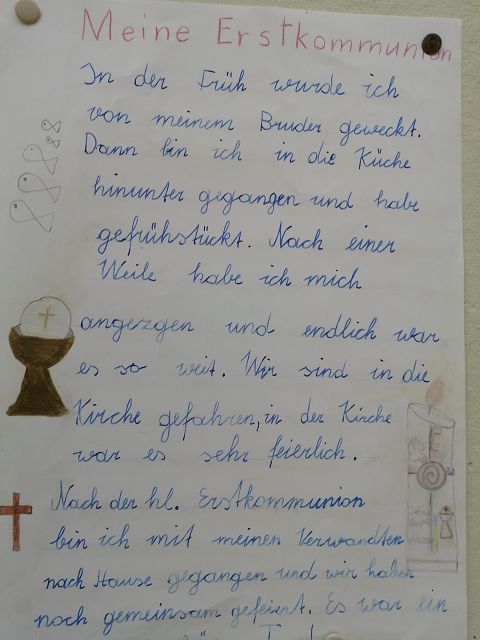 Meine Erstkommunion
In der Früh wurde ich
von meinem Bruder geweckt.
Dann bin ich in die Küche
hinunter gegangen und habe
gefrühstückt. Nach einer
Weile habe ich mich
angezogen und endlich war
es so weit. Wir sind in die
Kirche gefahren, in der Kirche
war es sehr feierlich.
Nach der hl. Erstkommunion
bin ich mit meinen Verwandten
nach Hause gegangen und wir haben
noch gemeinsam gefeiert. Es war ein